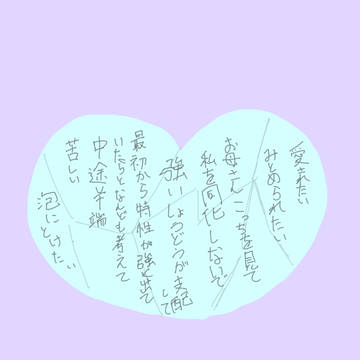 愛されたい
みとめられたい
お母さんこっちを見て
私を同化しないで
強いしょうどうが支配して
最初から特性が強く出て
いたらとなんども考えて
中途半端
苦しい
泡にとけたい